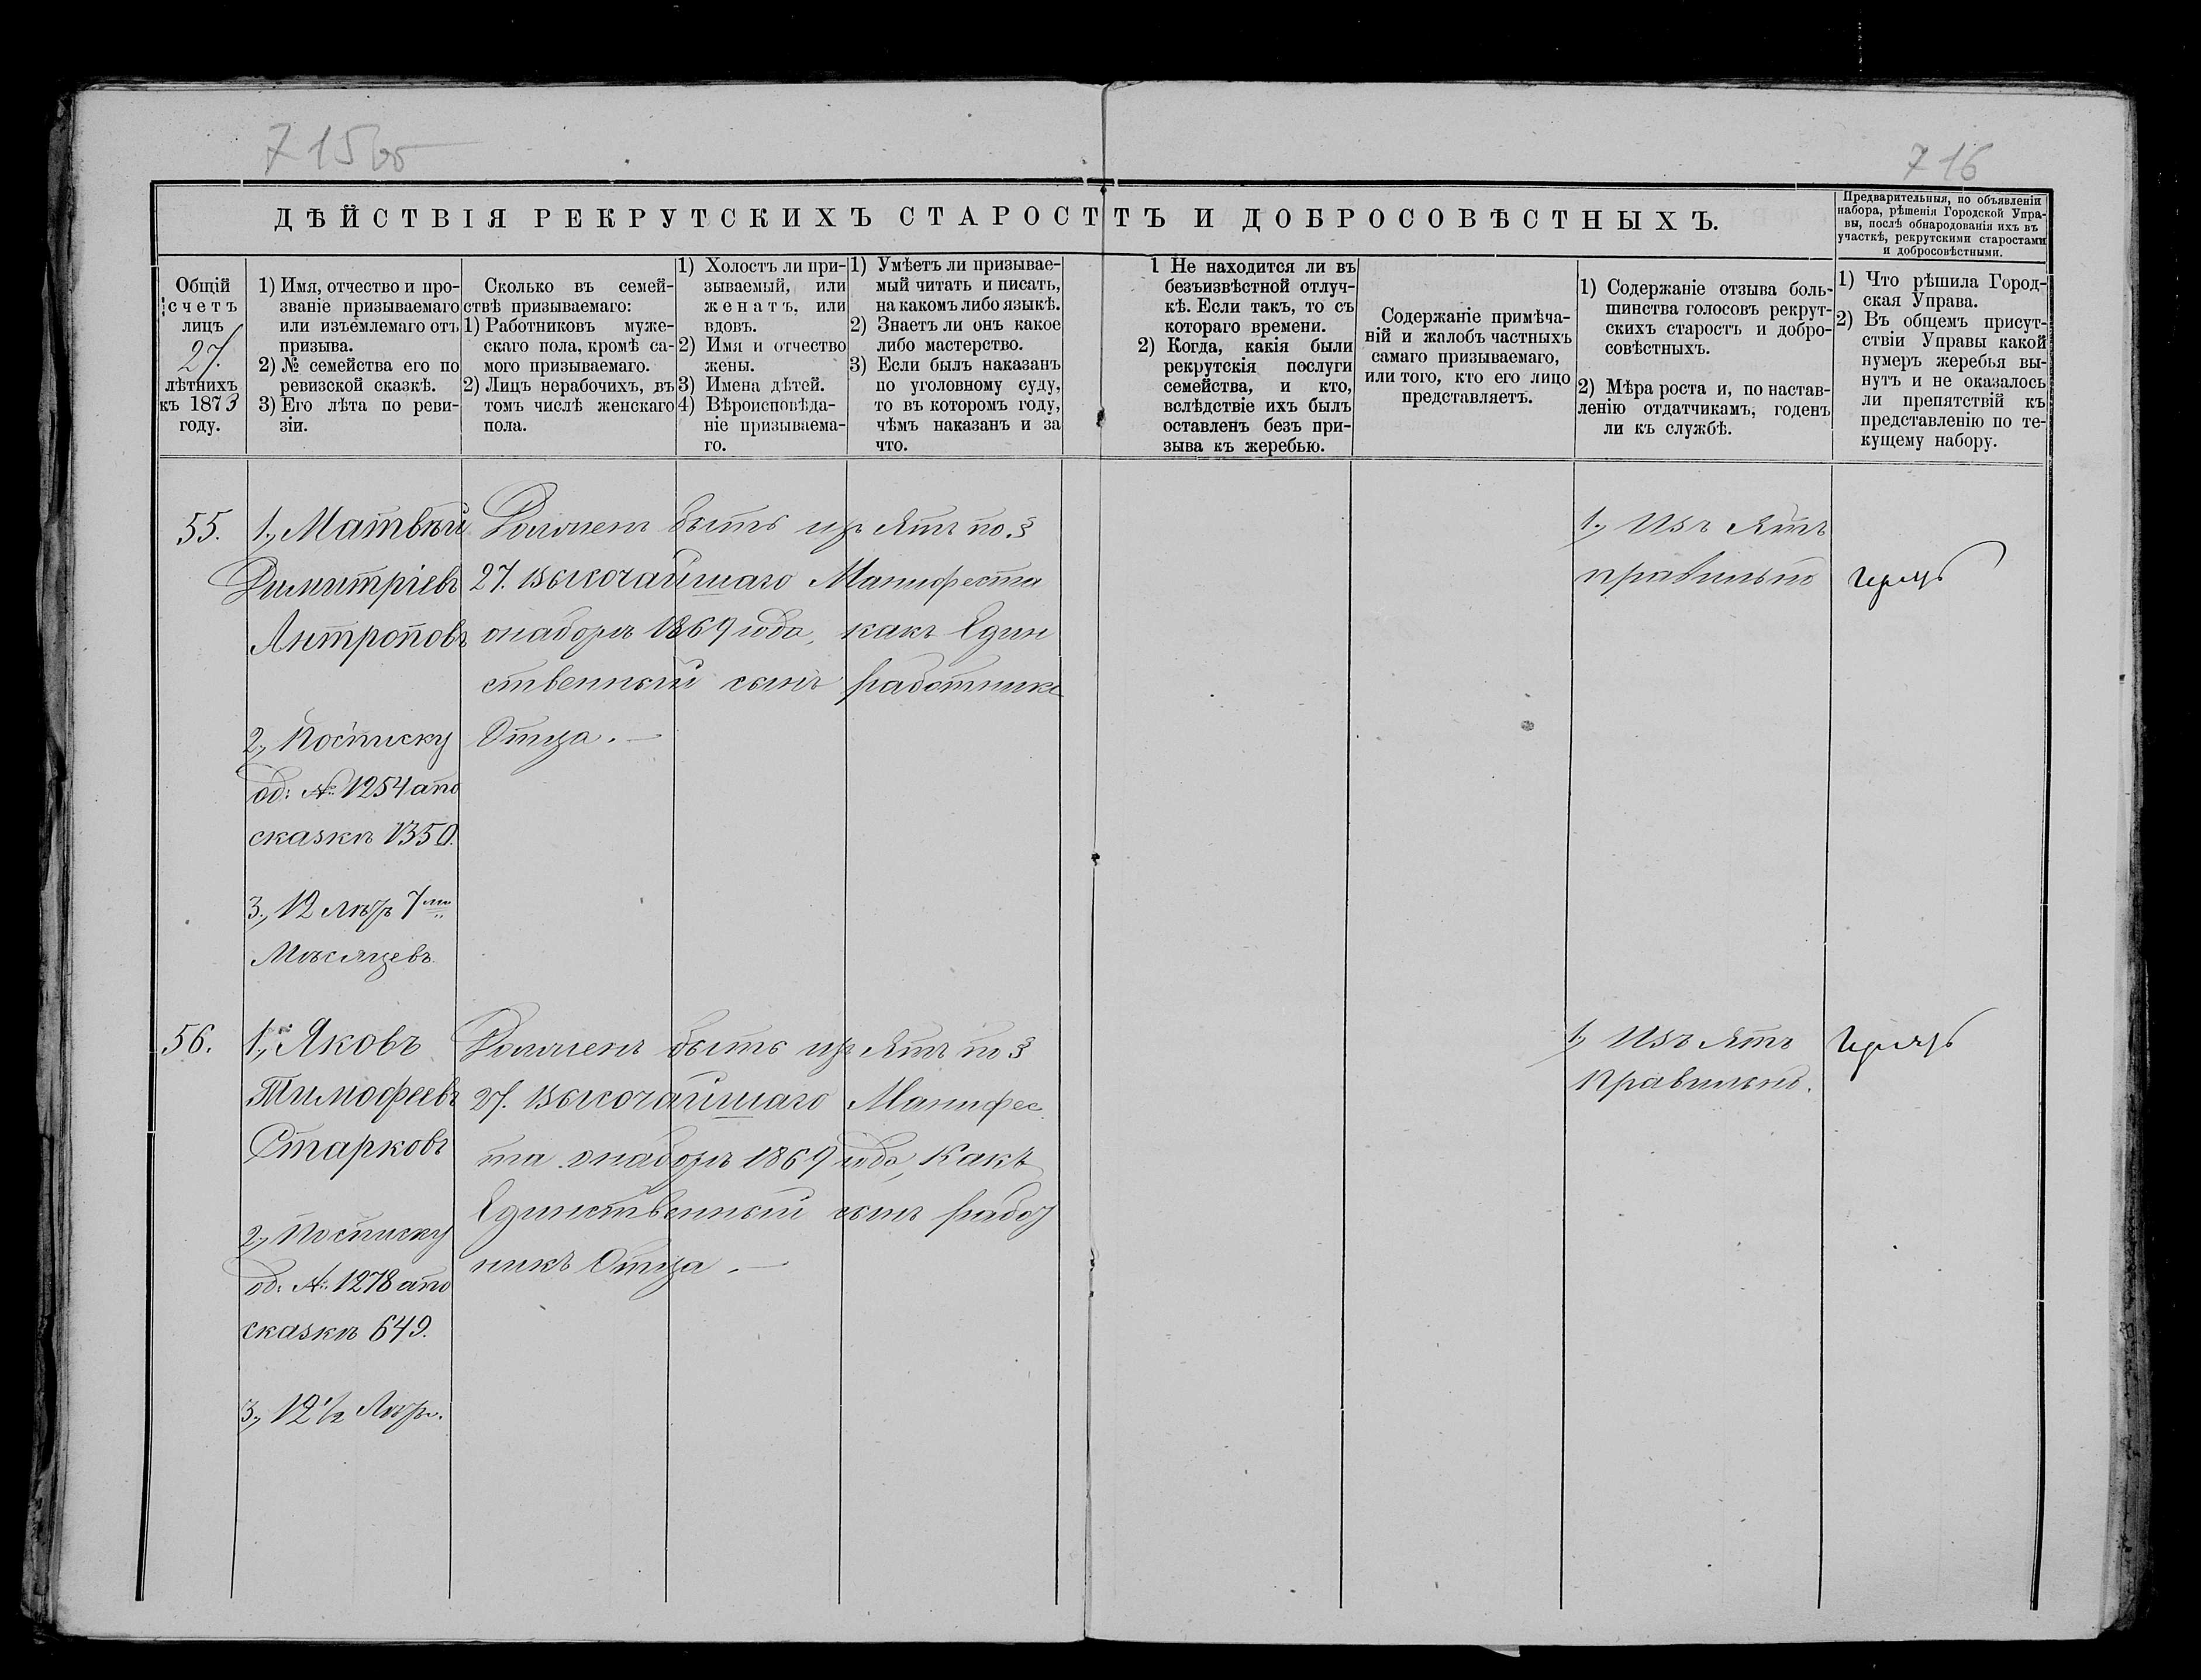 715об
716
ДѢЙСТВІЯ РЕКРУТСКИХЪ СТАРОСТТЪ И ДОБРОСОВѢСТНЫХЪ.
Предварительныя, по объявленіи
набора, рѣшенія Городской Упра-
вы, послѣ обнародованія ихъ въ
участкѣ, рекрутскими старостами
и добросовѣстными.
Общій
счетъ
лицъ
27.
лѣтнихъ
къ 1873
году.
1) Имя, отчество и про-
званіе призываемаго
или изъемлемаго отъ
призыва.
2) № семейства его по
ревизской сказкѣ.
3) Его лѣта по реви-
зіи.
Сколько въ семей-
ствѣ призываемаго:
1) Работниковъ муже-
скаго пола, кромѣ са-
мого призываемаго.
2) Лицъ нерабочихъ, въ
томъ числѣ женскаго
пола.
1) Холостъ ли при-
зываемый, или
женатъ, или
вдовъ.
2) Имя и отчество
жены.
3) Имена дѣтей.
4) Вѣроисповѣда-
ніе призываема-
го.
1) Умѣетъ ли призывае-
мый читать и писать,
на какомъ либо языкѣ.
2) Знаетъ ли онъ какое
либо мастерство.
3) Если былъ наказанъ
по уголовному суду,
то въ которомъ году,
чѣмъ наказанъ и за
что.
1 Не находится ли въ
безъизвѣстной отлуч-
кѣ. Если такъ, то съ
котораго времени.
2) Когда, какія были
рекрутскія послуги
семейства, и кто,
вслѣдствіе ихъ былъ
оставленъ безъ при-
зыва къ жеребью.
Содержаніе примѣча-
ній и жалобъ частныхъ
самаго призываемаго,
или того, кто его лицо
представляетъ.
1) Содержаніе отзыва боль-
шинства голосовъ рекрут-
скихъ старостъ и добро-
совѣстныхъ.
2) Мѣра роста и, по настав-
ленію отдатчикамъ, годенъ
ли къ службѣ.
1) Что рѣшила Город-
ская Управа.
2) Въ общемъ присут-
ствіи Управы какой
нумеръ жеребья вы-
нутъ и не оказалось
ли препятствій къ
представленію по те-
кущему набору.
55.
1., Матвѣй
Димитріевъ
Антроповъ
2., По списку
об: №: 1254 а по
сказкѣ 1350.
3., 12 лѣтъ 7ми
Мѣсяцевъ.
Должен быть изъ ятъ по §
27. Высочайшаго Манифеста
о наборѣ 1869 года, какъ Един
ственный сынъ работникъ
Отца. —
1., Изъ Ятъ
правильно
56.
1., Яковъ
Тимофеевъ
Старковъ
2., По списку
об: №: 1278 а по
сказкѣ 649.
3., 12 1/2 Лѣтъ.
Должен быть изъ ятъ по §
27. Высочайшаго Манифес
та о наборѣ 1869 года, Какъ
Единственный сынъ работ
никъ Отца. —
1., Изъ Ятъ
Правильно.